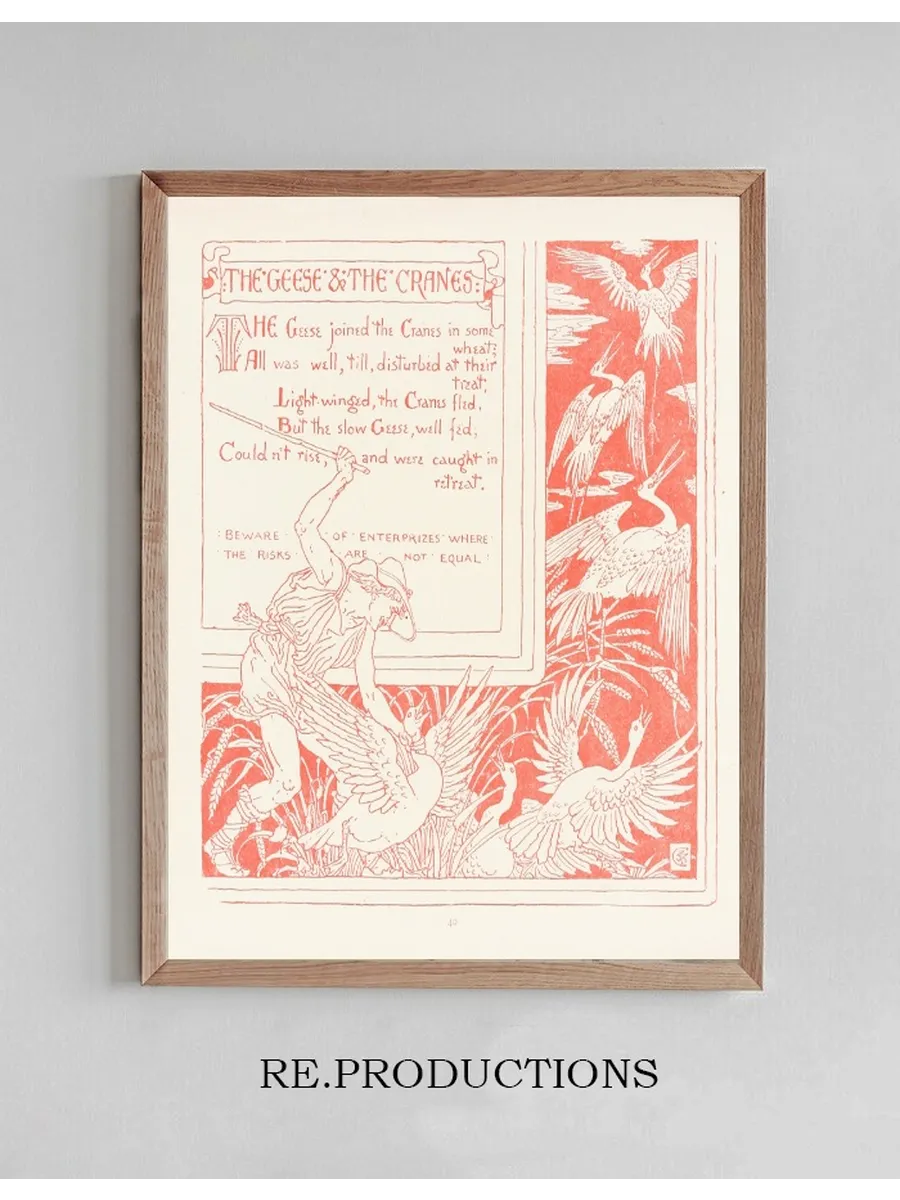 THE GEESE & THE CRANES:
THE Geese joined the Cranes in some
wheat;
All was well, till, disturbed at their
treat,
Light-winged, the Cranes fled,
But the slow Geese, well fed,
Couldn't rise, and were caught in
retreat.
: BEWARE · OF · ENTERPRIZES · WHERE ·
· THE RISKS · ARE · NOT · EQUAL :
40
RE.PRODUCTIONS